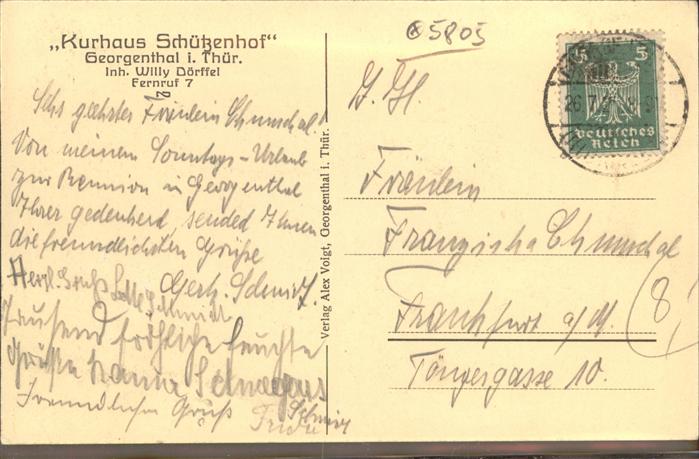 „Kurhaus Schützenhof“
Georgenthal i. Thür.
Inh. Willy Dörffel
Fernruf 7
Sehr geehrtes Fräulein Chunschal!
Von meinem Sonntags-Urlaub
zur Reunion in Georgenthal
Ihrer gedenkend, sendet Ihnen
die freundlichsten Grüße
Gerh. Schmidt.
Herzl. Gruß Schmidt
Tausend fröhliche feuchte
Grüße Hanna
Freundlichen Gruß
Verlag Alex Voigt, Georgenthal i. Thür.
5805
5 5
Deutsches
Reich
26.7
Fräulein
Franziska Chunschal
Frankfurt a/M. (8)
Töngesgasse 10.